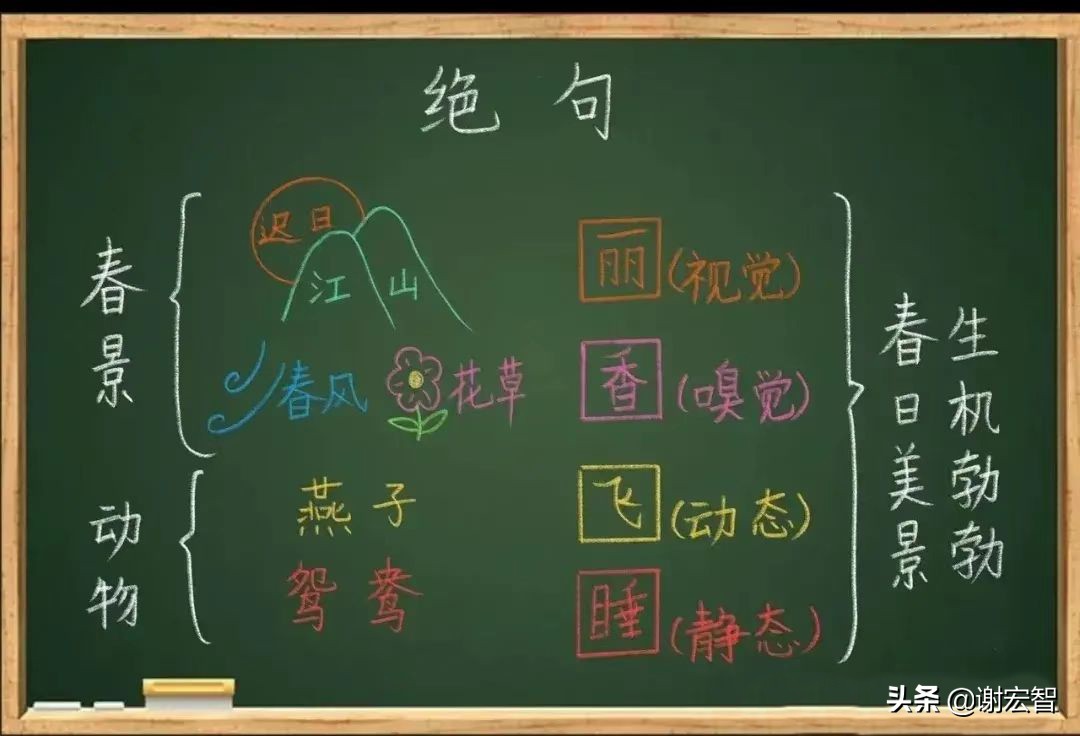 绝句
春景
迟日
江山
丽(视觉)
春风
花草
香(嗅觉)
动物
燕子
飞(动态)
鸳鸯
睡(静态)
春日美景
生机勃勃
头条 @谢宏智